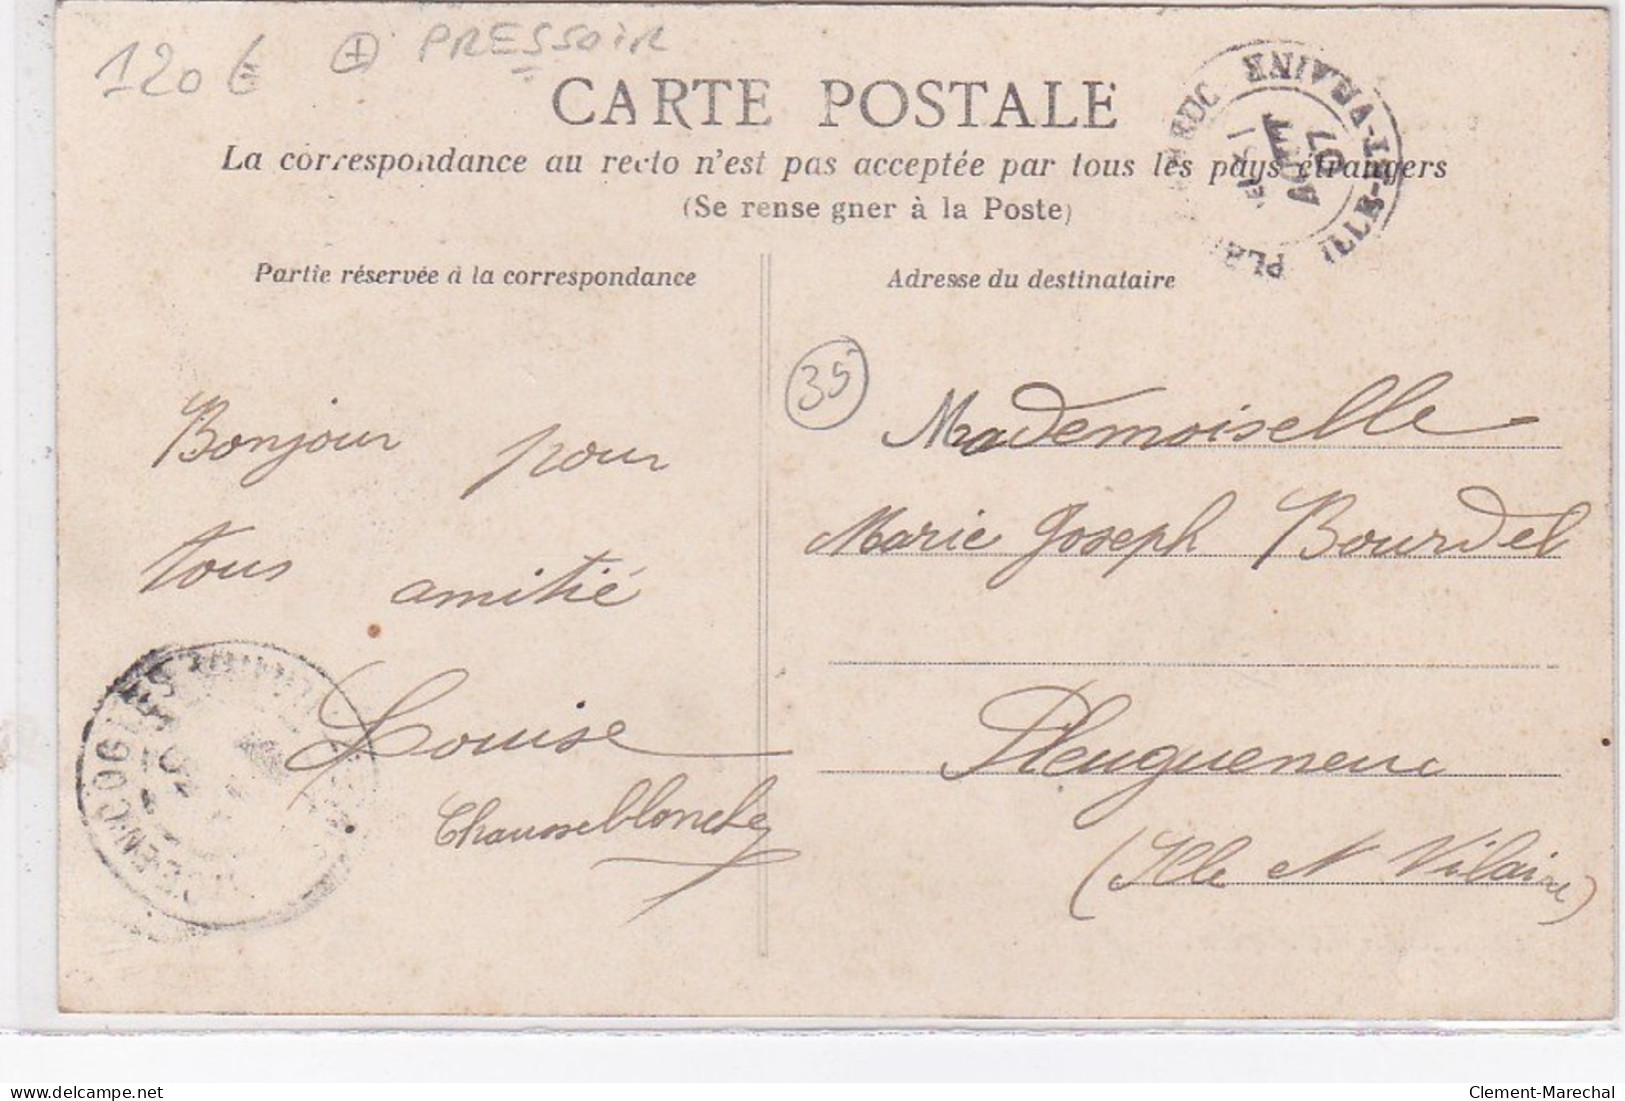 120 € + PRESSOIR
CARTE POSTALE
La correspondance au recto n'est pas acceptée par tous les pays étrangers
(Se renseigner à la Poste)
ILLE-ET-VILAINE
AOUT
07
Partie réservée à la correspondance
Adresse du destinataire
35
Bonjour pour
tous amitié
Louise
Mademoiselle
Marie Joseph Bourdel
Pleugueneuc
(Ille et Vilaine)
COGLES
delcampe.net
Clement-Marechal